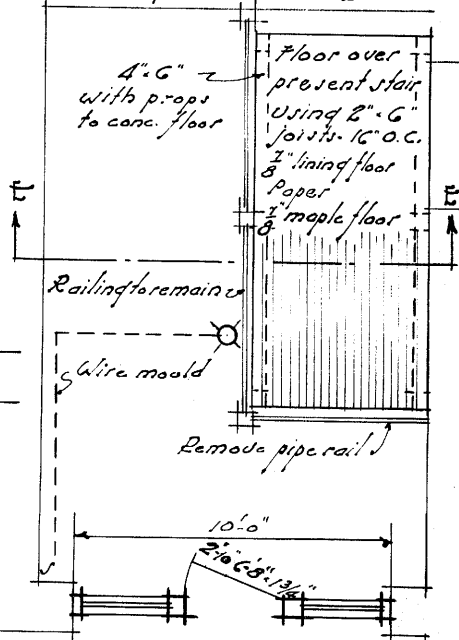 4"×6"
with props
to conc. floor
Floor over
present stair
using 2"×6"
joists-16" O.C.
7/8" lining floor
Paper
7/8" maple floor
Railing to remain
Wire mould
Remove pipe rail
10'-0"
2'-10"×6'-8"×1 3/4"